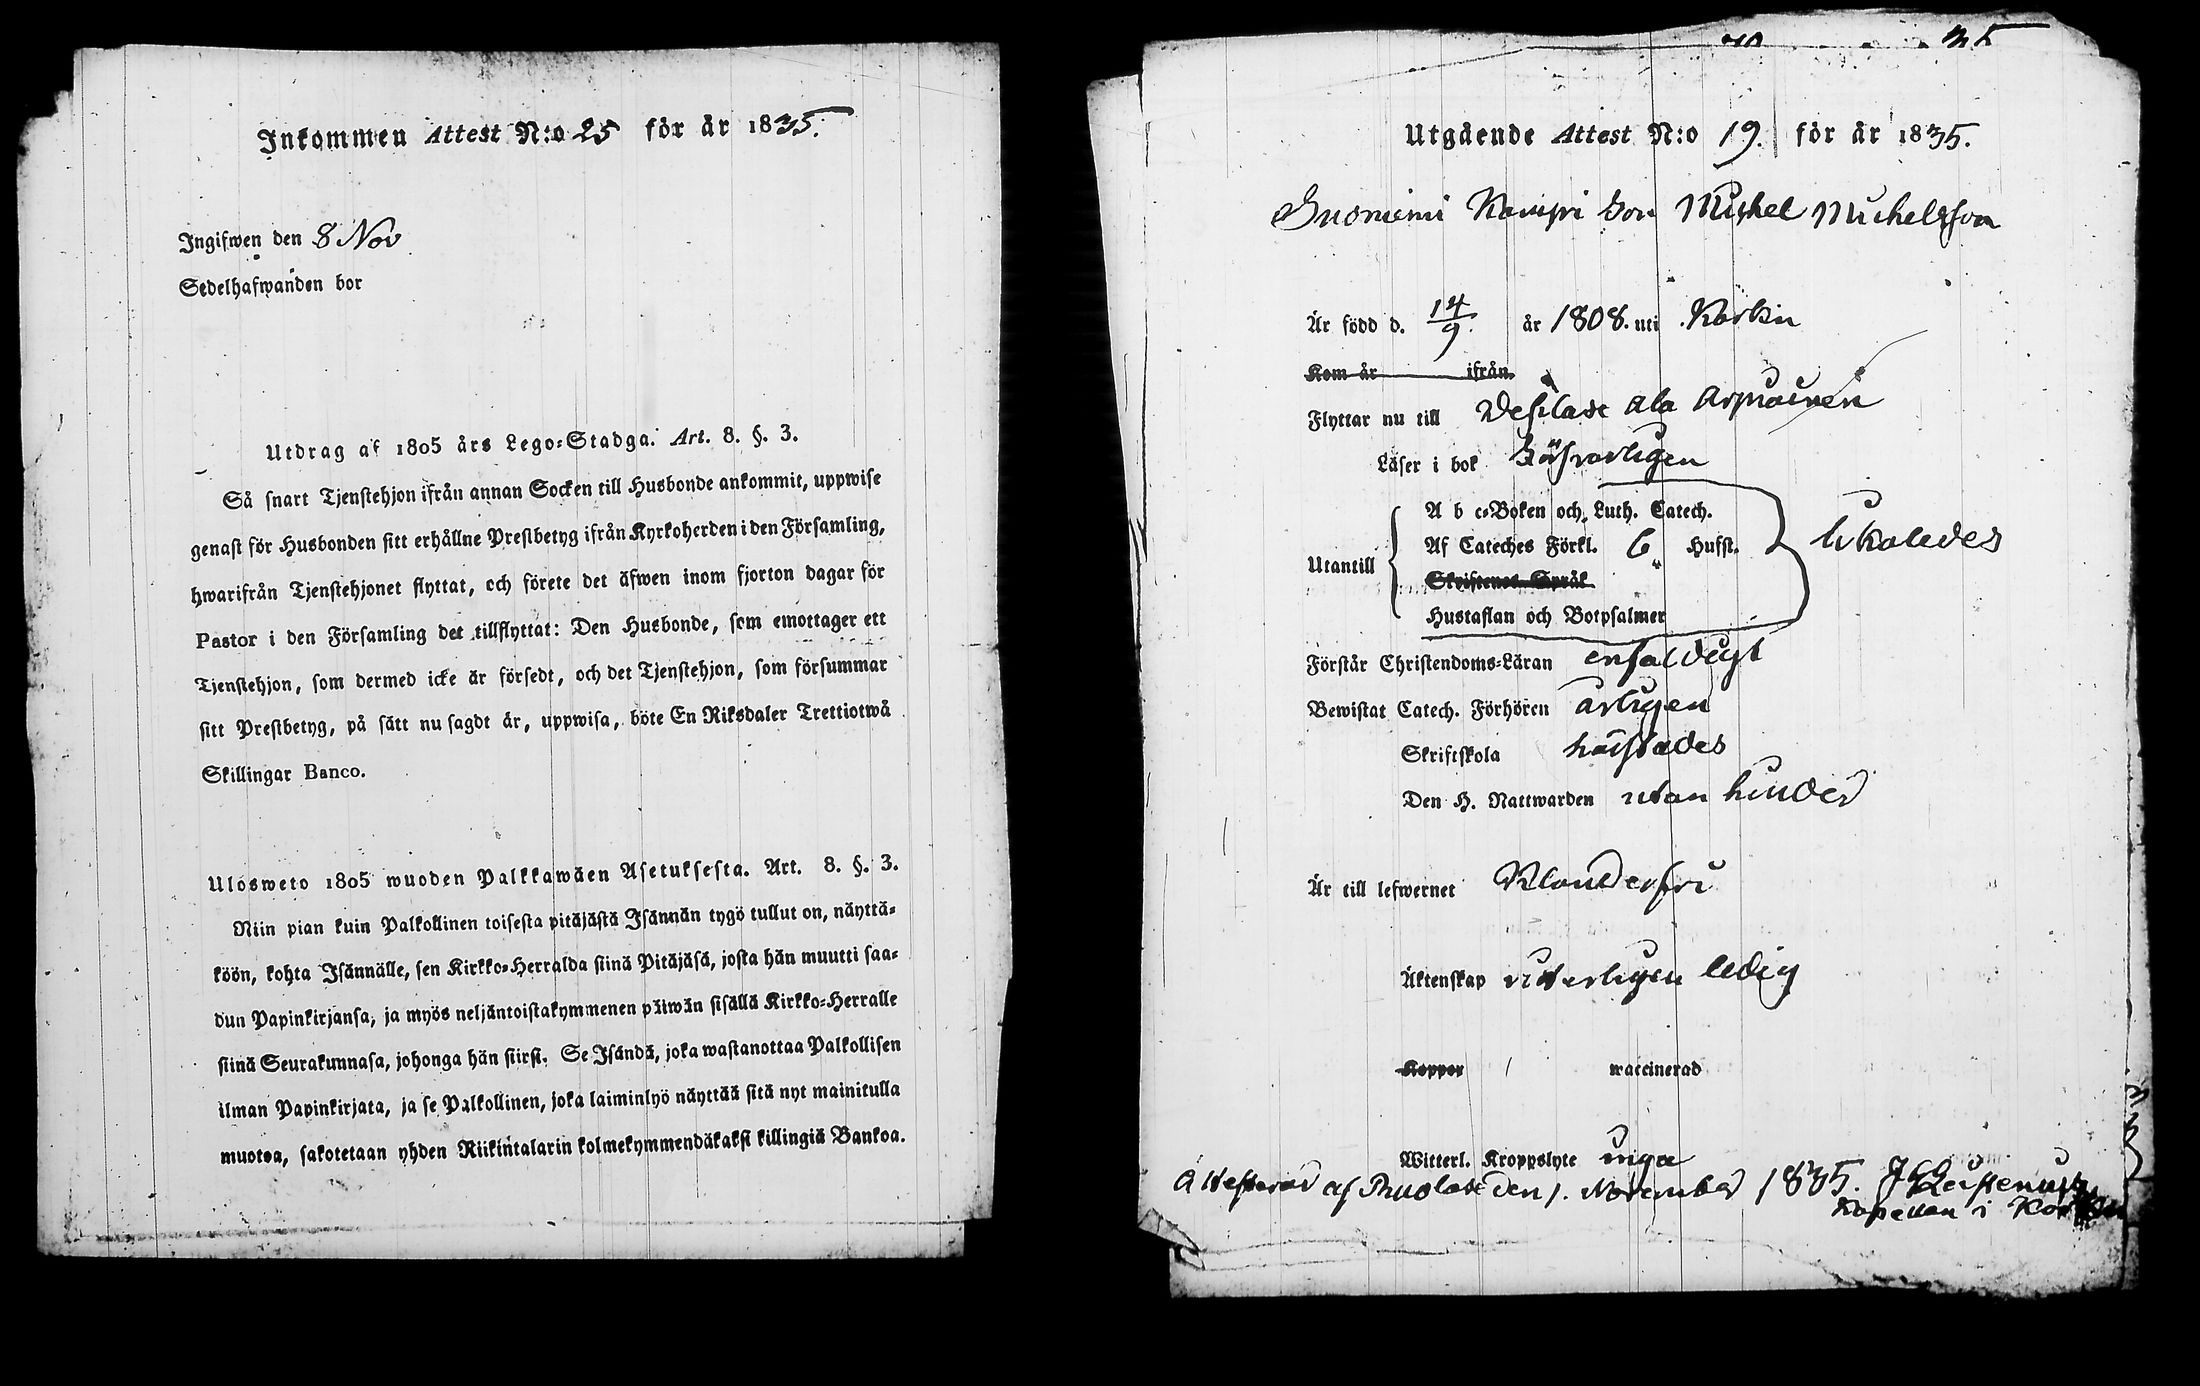 Inkommen Attest N:o 25 för år 1835.
Ingifwen den 8 Nov
Sedelhafwanden bor
Utdrag af 1805 års Lego-Stadga. Art. 8. §. 3.
Så snart Tjenstehjon ifrån annan Socken till Husbonde ankommit, uppwise
genast för Husbonden sitt erhållne Prestbetyg ifrån Kyrkoherden i den Församling,
hwarifrån Tjenstehjonet flyttat, och förete det äfwen inom fjorton dagar för
Pastor i den Församling det tillflyttat: Den Husbonde, som emottager ett
Tjenstehjon, som dermed icke är försedt, och det Tjenstehjon, som försummar
sitt Prestbetyg, på sätt nu sagdt är, uppwisa, böte En Riksdaler Trettiotwå
Skillingar Banco.
Ulosweto 1805 wuoden Palkkawäen Asetuksesta. Art. 8. §. 3.
Niin pian kuin Palkollinen toisesta pitäjästä Isännän tygö tullut on, näyttä-
köön, kohta Isännälle, sen Kirkko-Herralda siinä Pitäjäsä, josta hän muutti saa-
dun Papinkirjansa, ja myös neljäntoistakymmenen päiwän sisällä Kirkko-Herralle
siinä Seurakunnasa, johonga hän siirsi. Se Isändä, joka wastanottaa Palkollisen
ilman Papinkirjata, ja se Palkollinen, joka laiminlyö näyttää sitä nyt mainitulla
muotoa, sakotetaan yhden Riikintalarin kolmekymmendäkaksi killingiä Bankoa.
35
Utgående Attest N:o 19. för år 1835.
Suoniemi Kauppi Son Michel Michelsson
Är född d. 14/9. år 1808. uti Karkku
Kom år ifrån
Flyttar nu till Wesilax Ala Arpiainen
Läser i bok försvarligen
Utantill
A b c-Boken och Luth. Catech.
Af Cateches Förkl. 6 Hufst.
Skriftenes Språk
Hustaflan och Botpsalmer
likaledes
Förstår Christendoms-Läran enfaldigt
Bewistat Catech. Förhören årligen
Skriftskola häfstädes
Den H. Nattwarden utan hinder
Är till lefwernet Klanderfri
Äktenskap ytterligen ledig
Koppor waccinerad
Witterl. Kroppslyte inga
Attesterad af den 1. November 1835.
Kapellan i Karkku